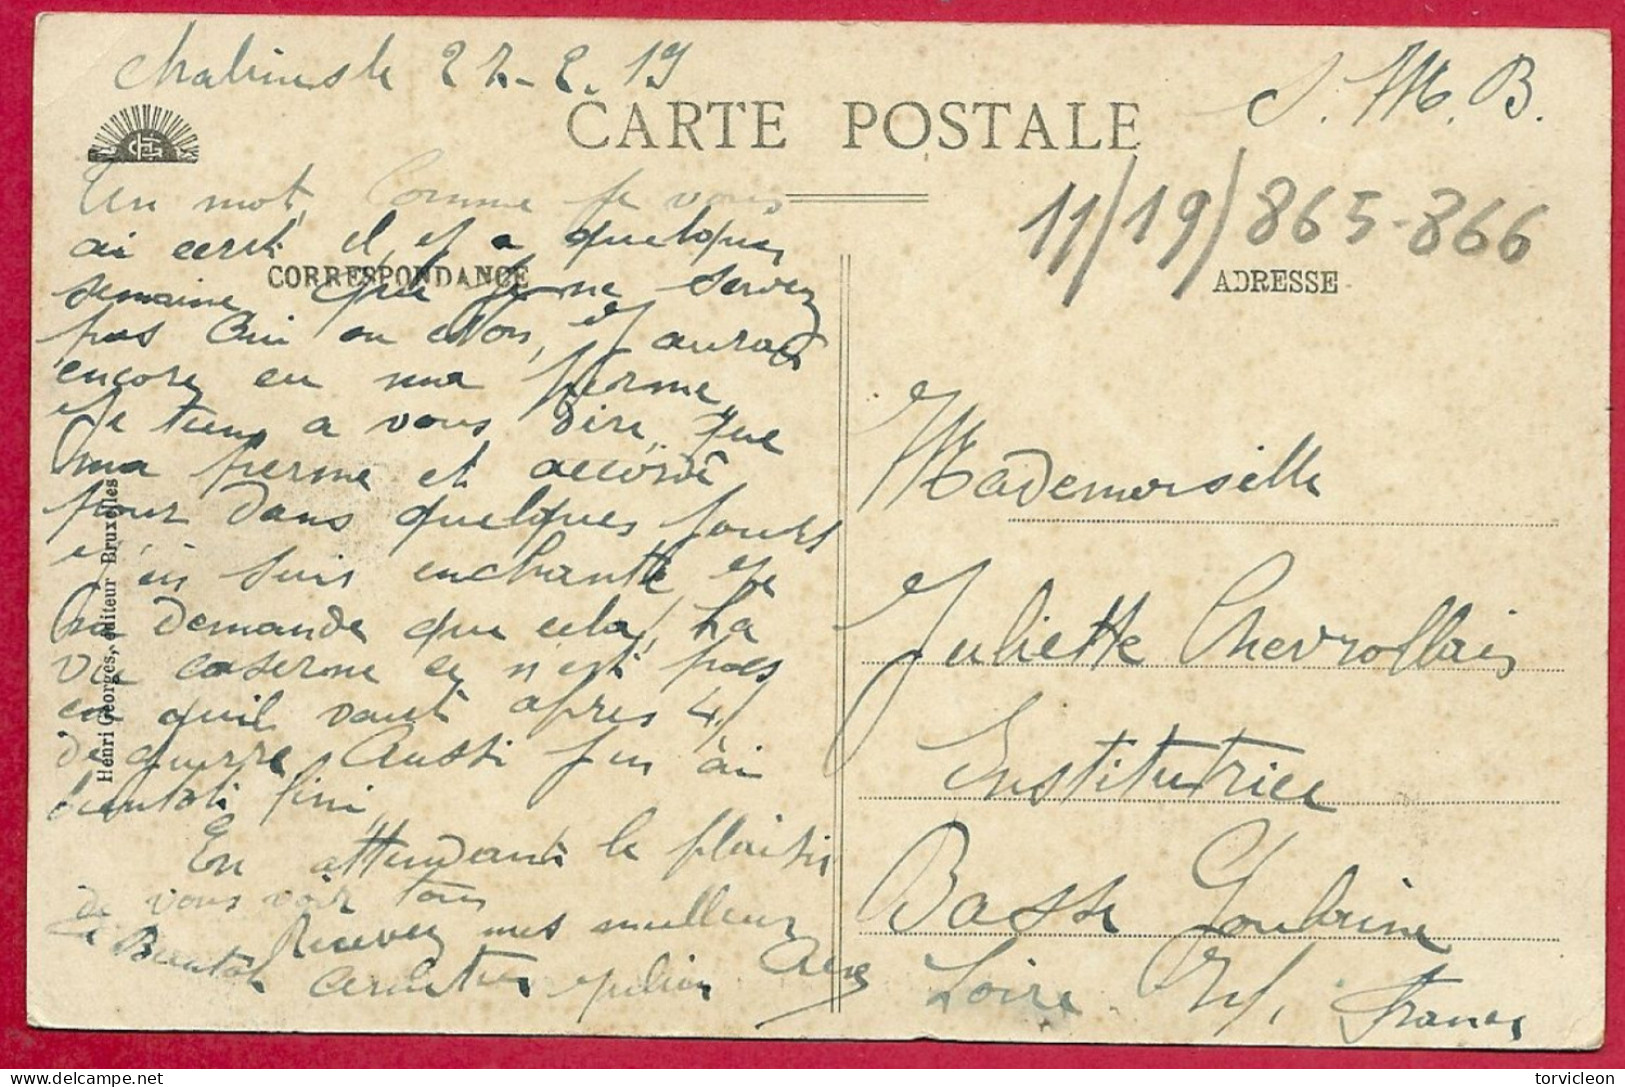 22-2.19
S. M. B.
CARTE POSTALE
11/19/865-866
Un mot, Comme je vous
ai ecrit il y a quelques
CORRESPONDANCE
ADRESSE
semaine que je ne savez
pas oui ou non, si j'aurais
encore eu ma perme,
Je tiens a vous dire, que
ma perme et accordé
pour dans quelques jours
j'en suis enchanté, je
ne demande que cela, La
vie caserne ce n'est pas
ce qu'il vaut apres 4
de guerre, Aussi
bientôt fini,
En attendant le plaisir
de vous voir tous
Recevez mes meilleurs
Bientôt
Mademoiselle
Juliette Chevrollais
Institutrice
Basse Goulaine
Loire Inf, France
Henri Georges, éditeur Bruxelles
delcampe.net
torvicleon